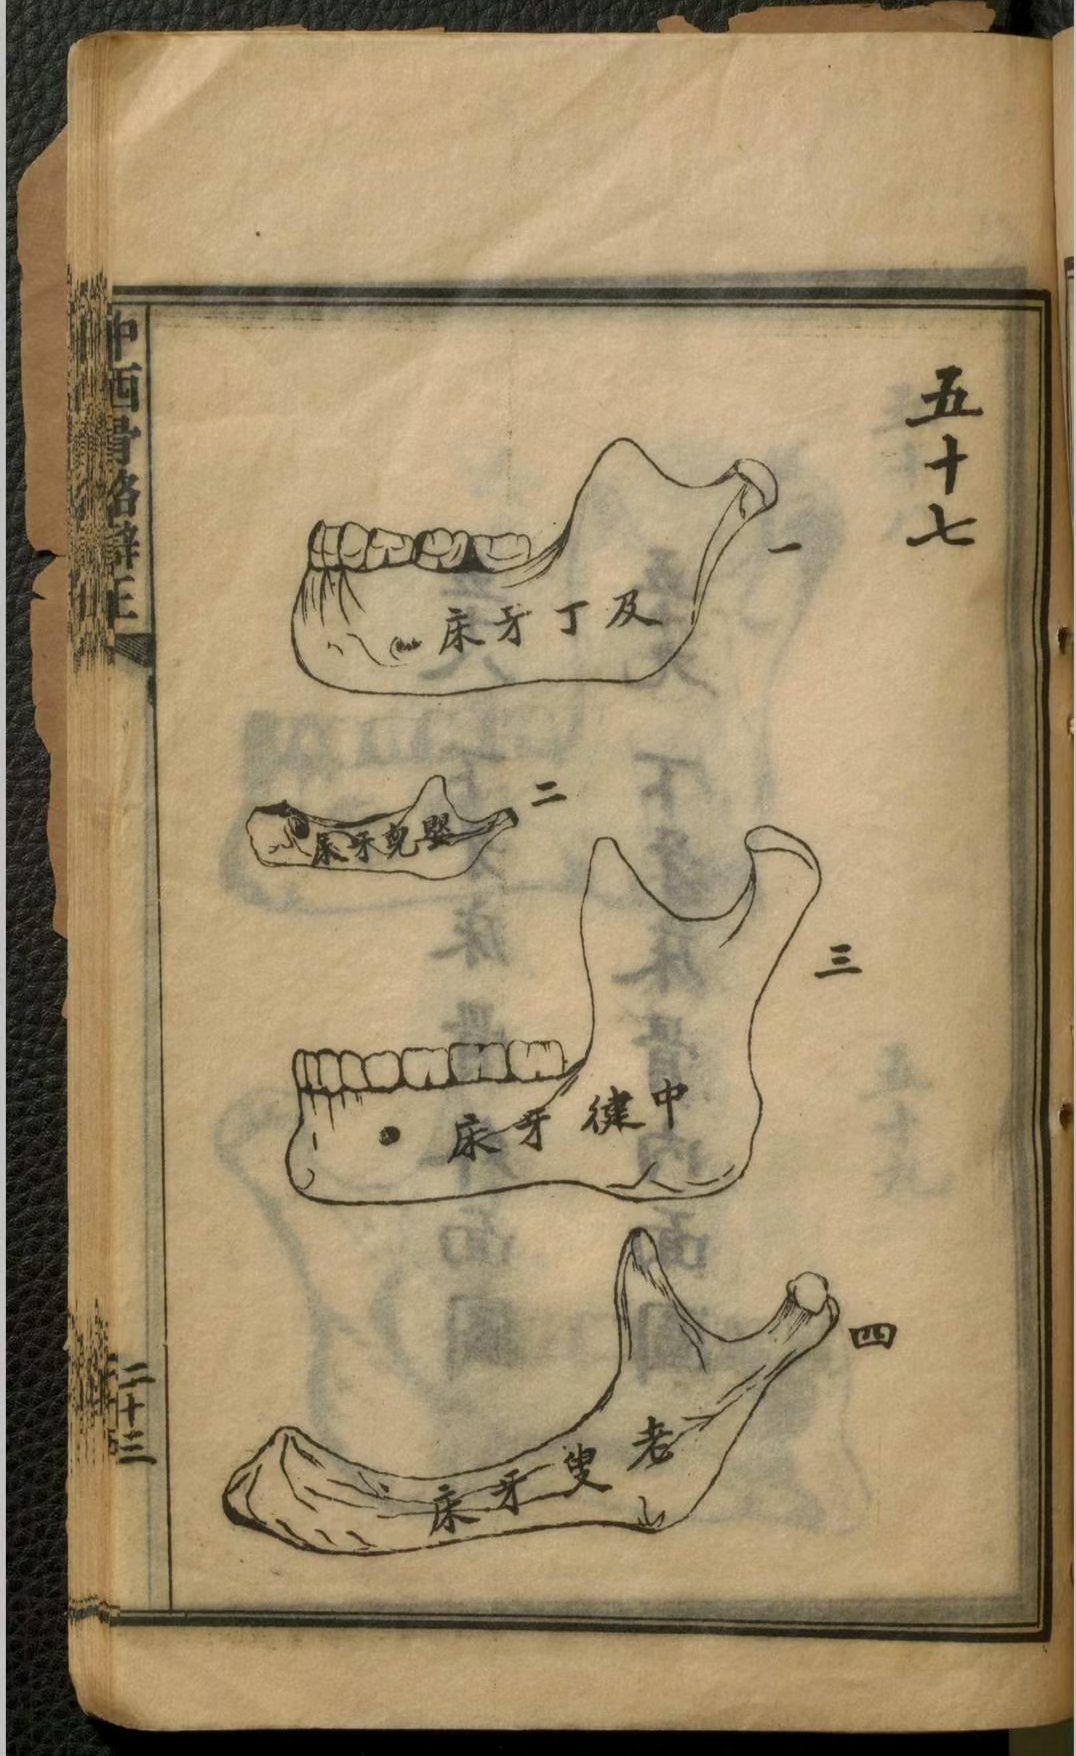 五十七
一
及丁牙床
二
嬰兒牙床
三
中健牙床
四
老叟牙床
中西骨格辯正
二十三